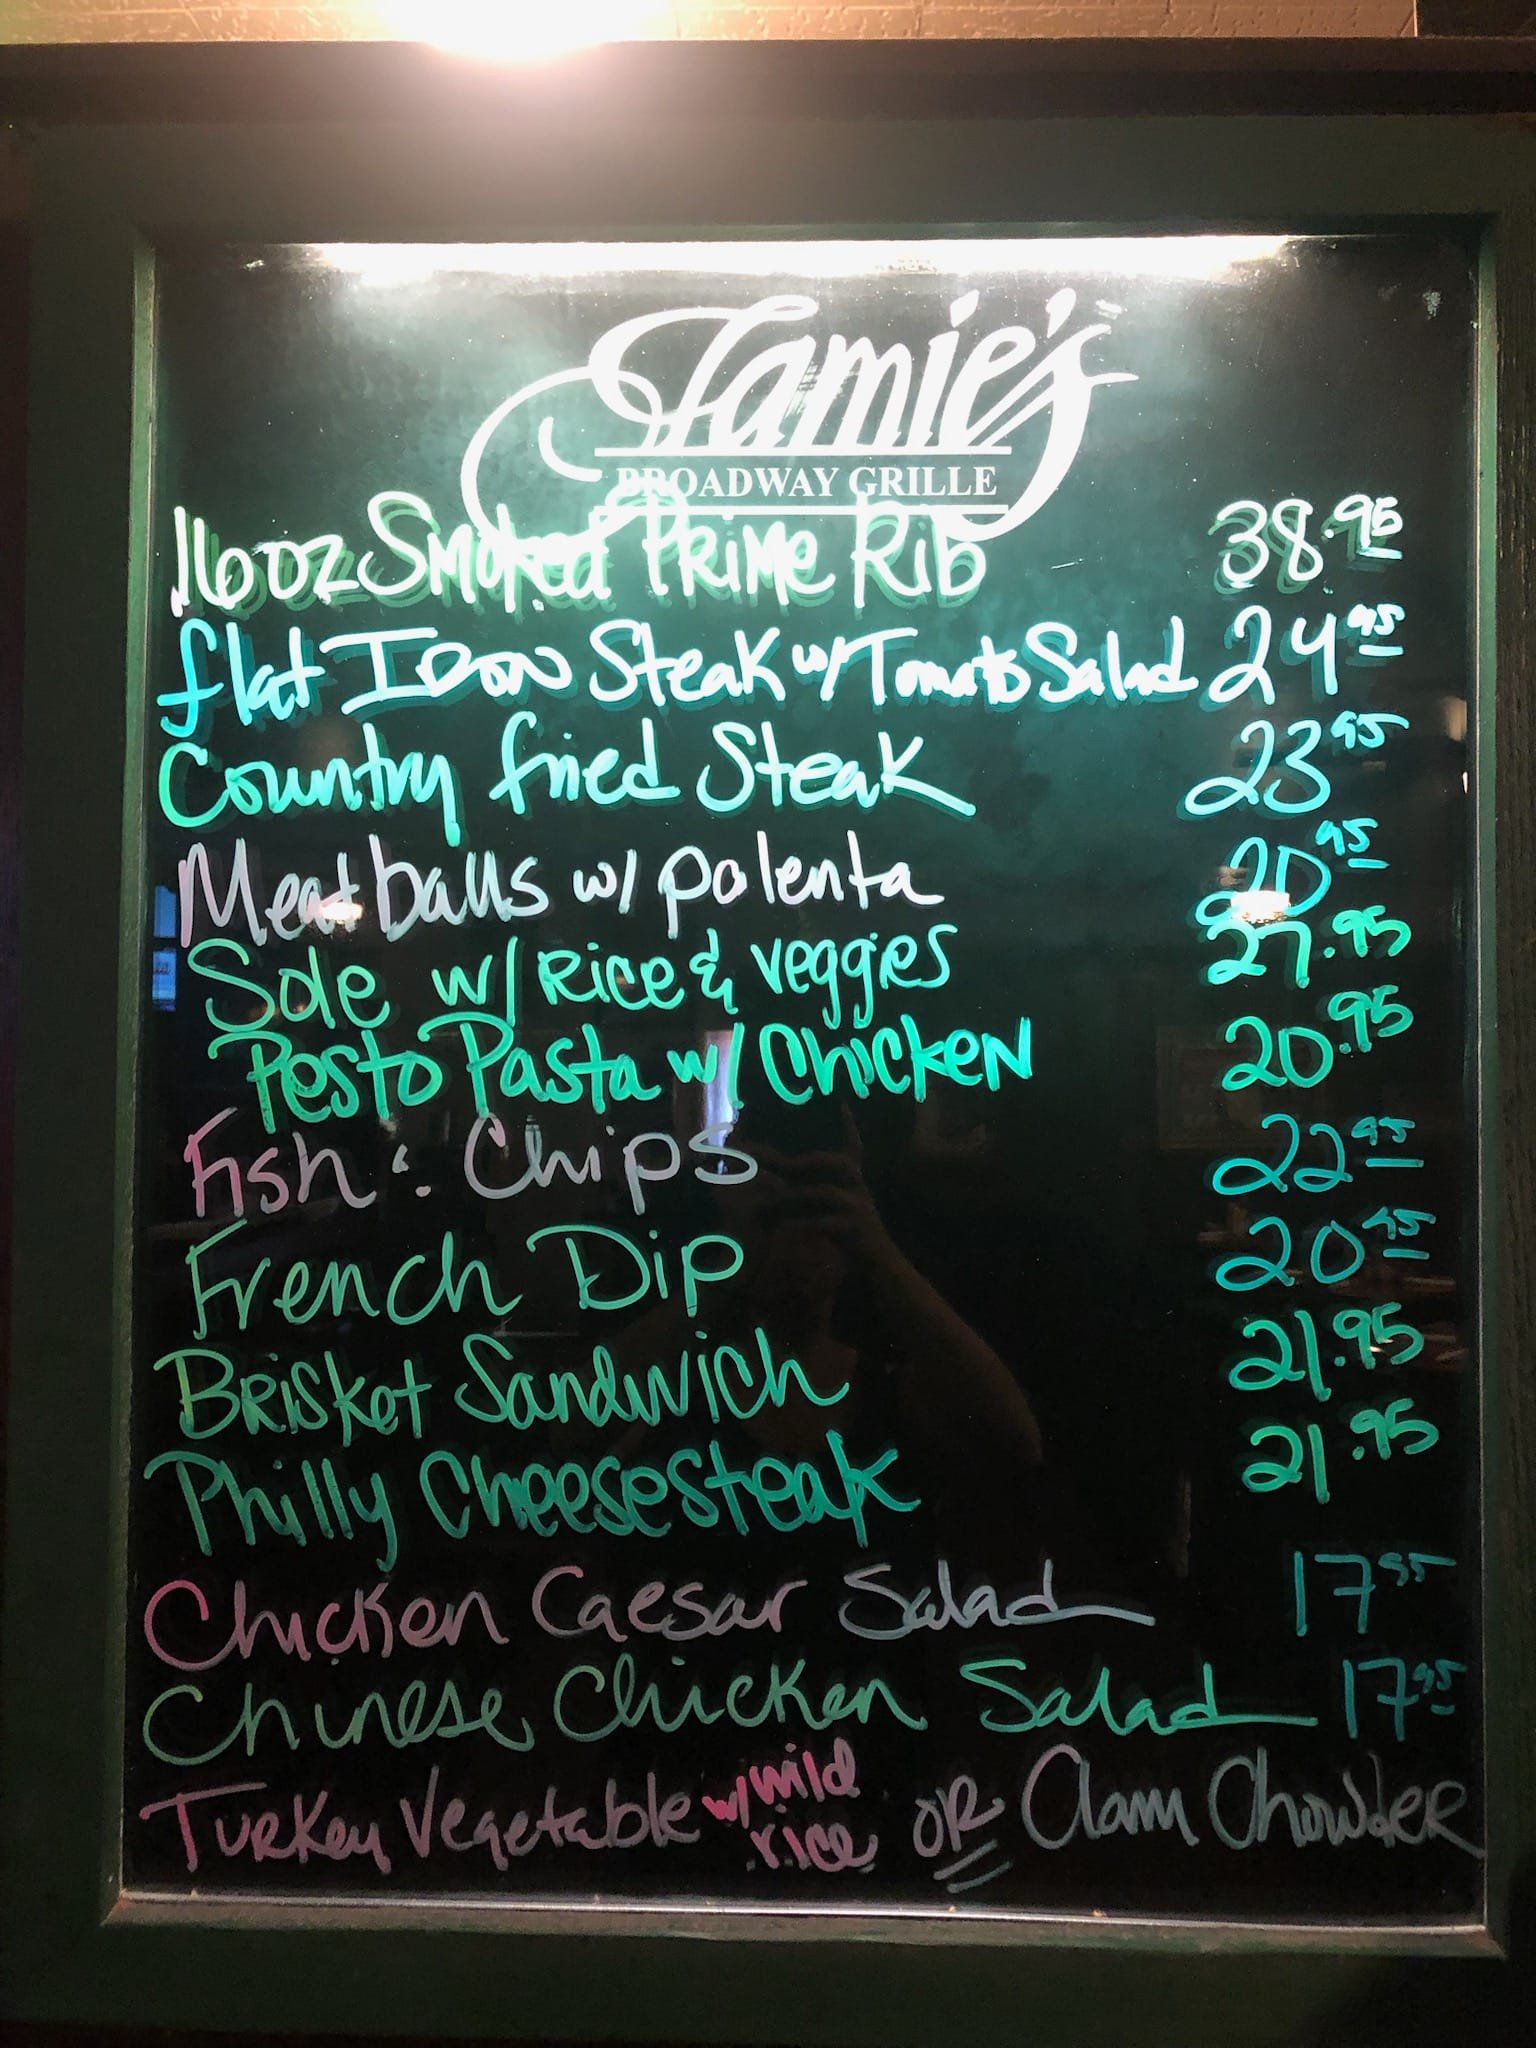 Jamie's
BROADWAY GRILLE
16oz Smoked Prime Rib 38.95
flat Iron Steak w/ Tomato Salad 24.95
Country fried Steak 23.95
Meatballs w/ polenta 20.95
Sole w/ Rice & veggies 27.95
Pesto Pasta w/ Chicken 20.95
Fish & Chips 22.95
French Dip 20.95
Brisket Sandwich 21.95
Philly Cheesesteak 21.95
Chicken Caesar Salad 17.95
Chinese Chicken Salad 17.95
Turkey Vegetable w/ wild rice OR Clam Chowder